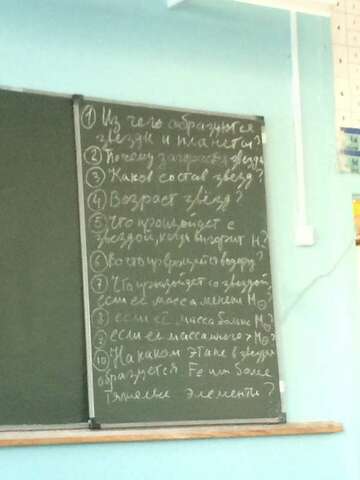 ① Из чего образуются
звезды и планеты?
② Почему загораются звезды
③ Каков состав звёзд?
④ Возраст звёзд?
⑤ Что произойдет с
звездой, когда выгорит H?
⑥ Во что превращается водород?
⑦ Что произойдет со звездой,
если её масса меньше M☉?
8 если её масса больше M☉?
9 если её масса много > M☉?
⑩ На каком этапе в звезде
образуется Fe или более
тяжелые элементы?